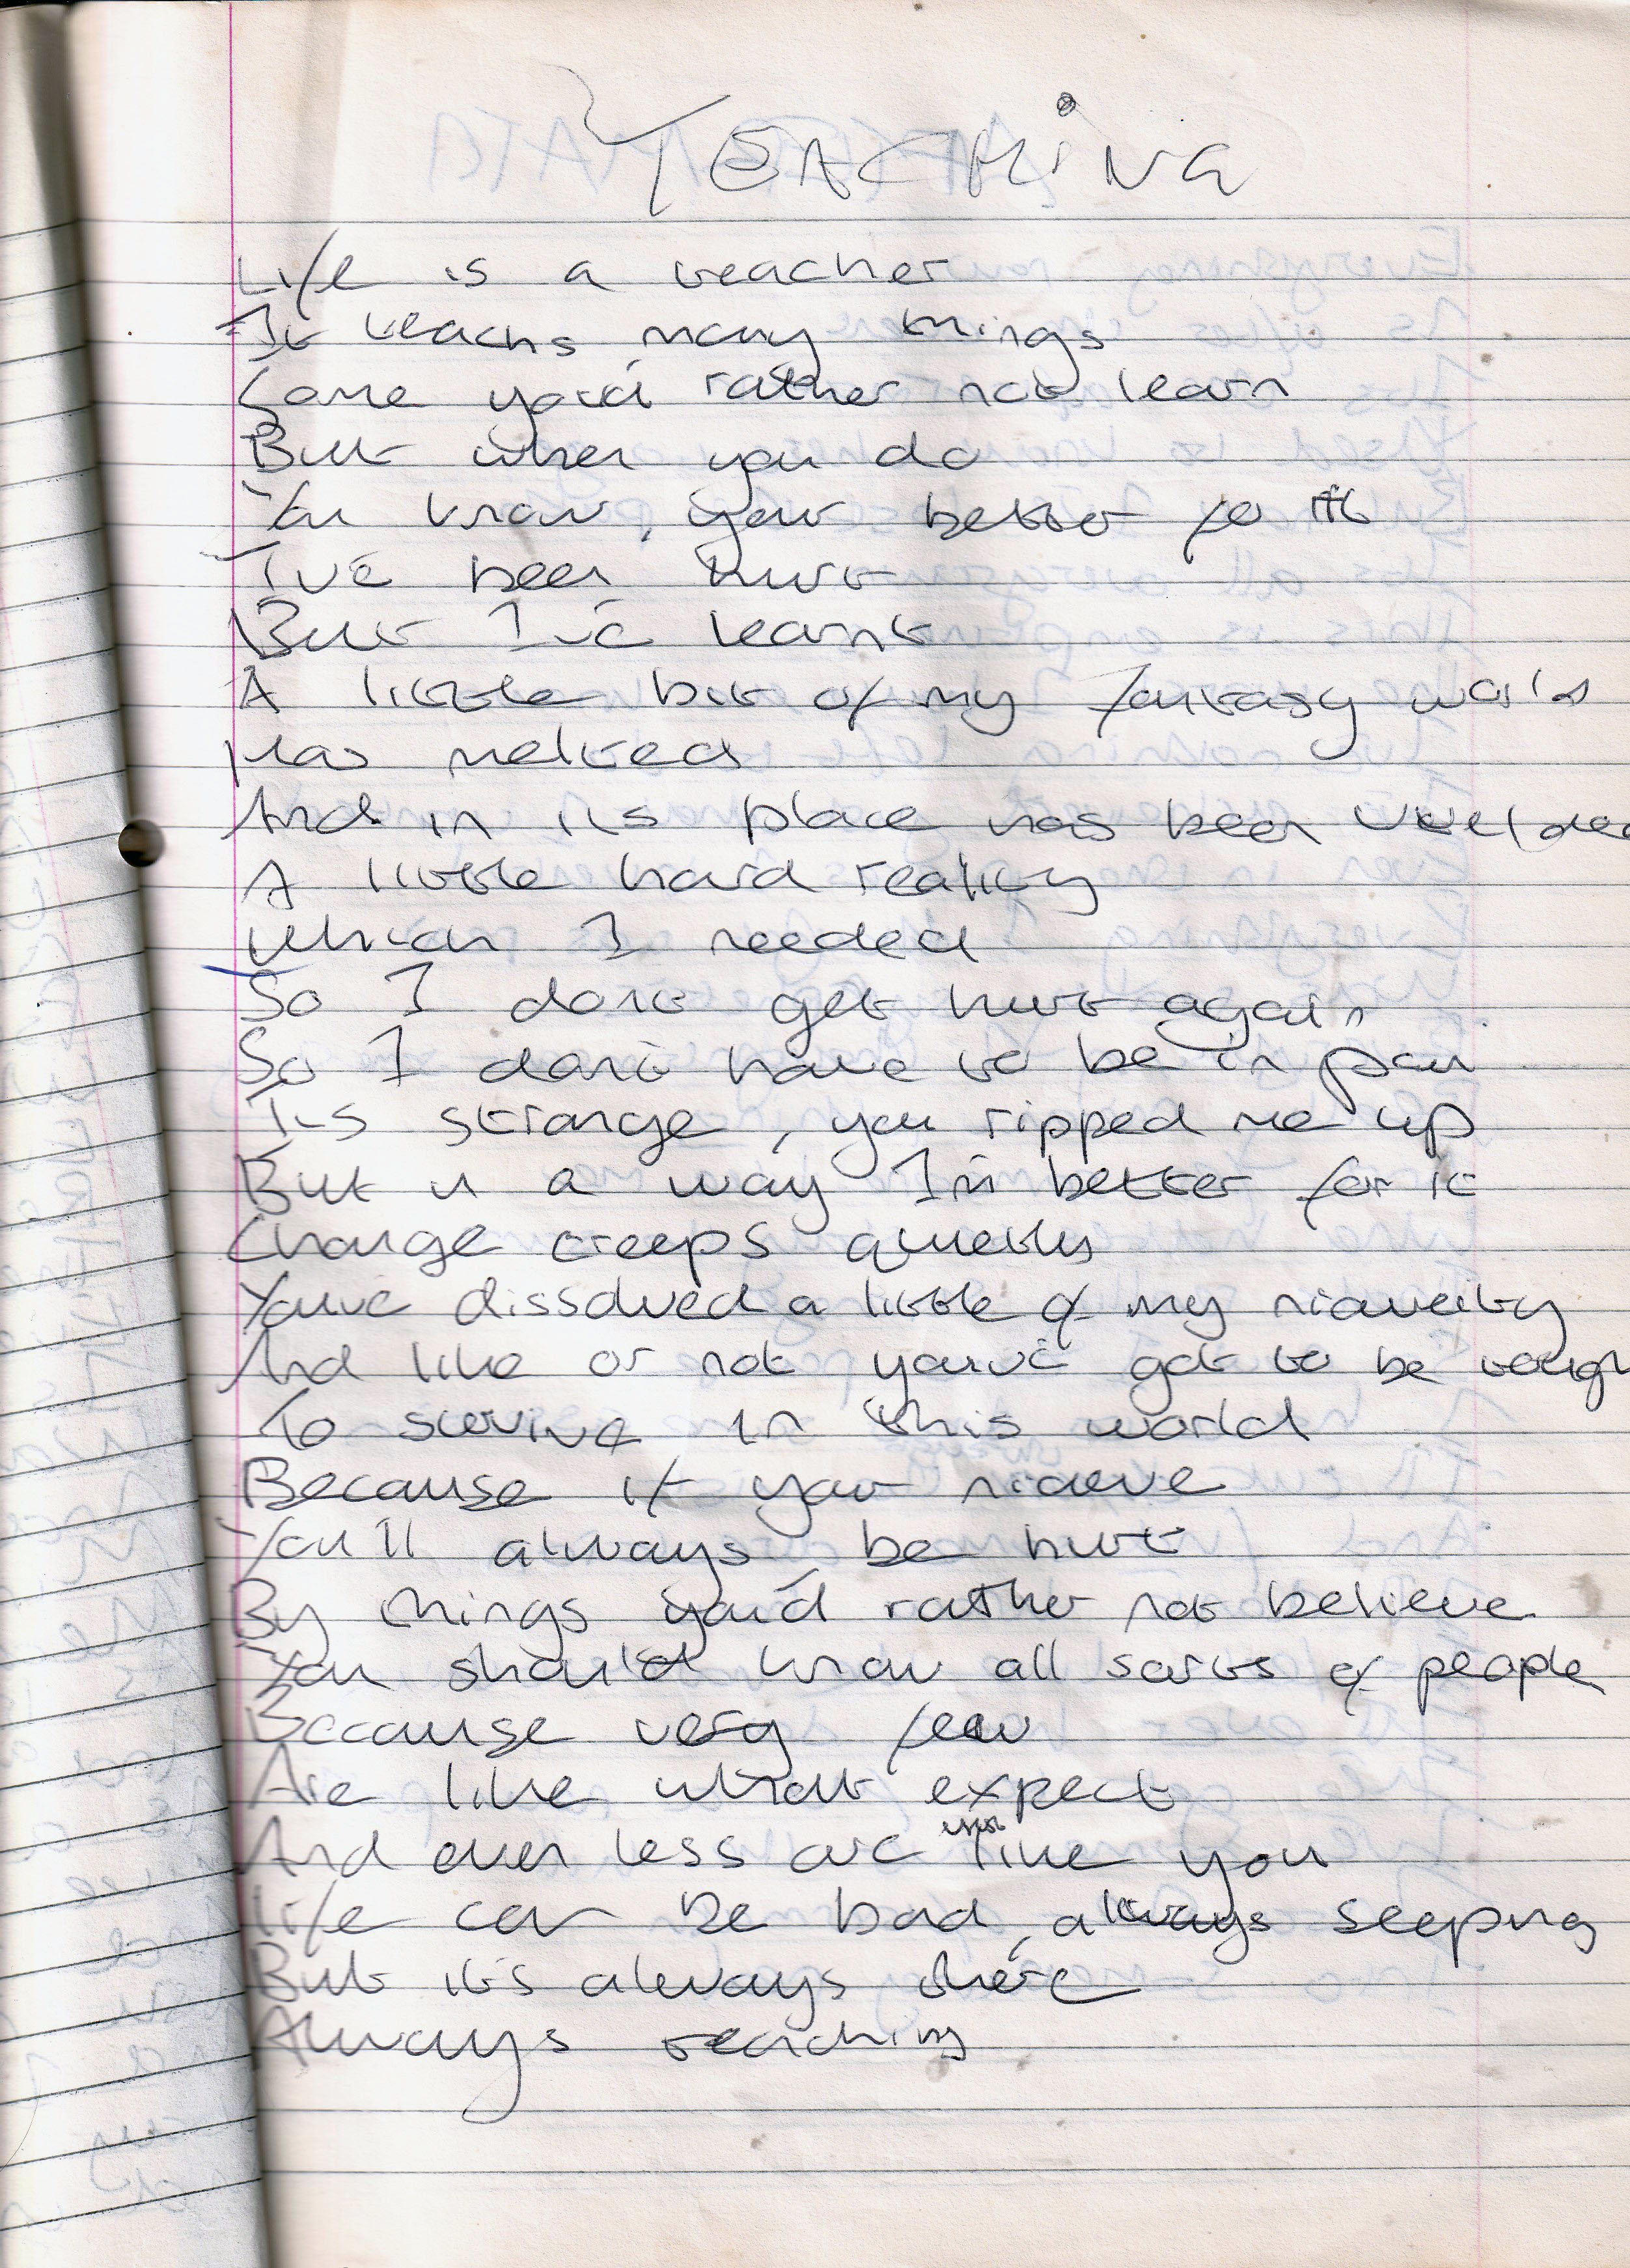 TEACHING
Life is a teacher
It teachs many things
Some you'd rather not learn
But when you do
You know, your better for it
I've been hurt
But I've learnt
A little bit of my fantasy world
Has melted
And in its place has been welded
A little hard reality
Which I needed
So I don't get hurt again
So I don't have to be in pain
Its strange, you ripped me up
But in a way I'm better for it
Change creeps quietly
You've dissolved a little of my niaveity
And like or not you've got to be tough
To survive in this world
Because if your niaeve
You'll always be hurt
By things you'd rather not believe
You should know all sorts of people
Because very few
Are like what expect
And even less are like you
Life can be bad, always seeping
But it's always there
Always teaching